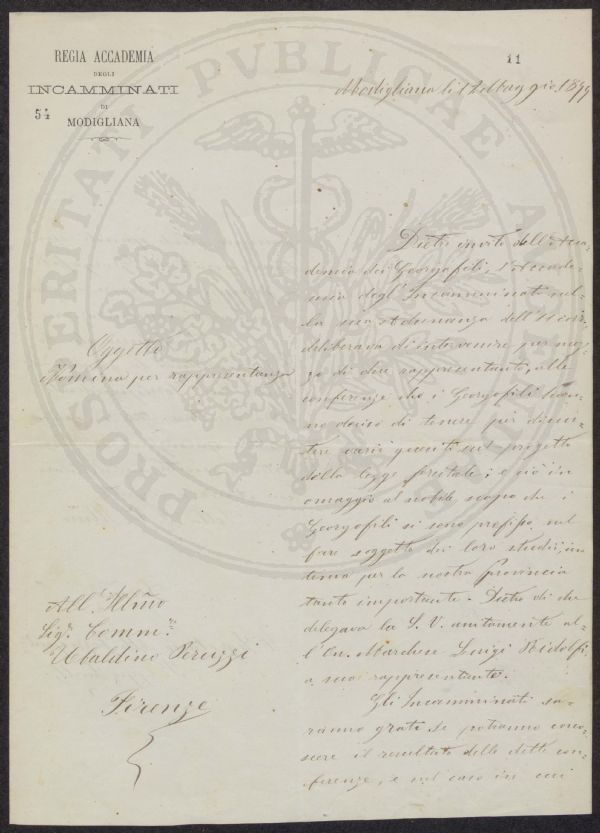 REGIA ACCADEMIA
DEGLI
INCAMMINATI
DI
MODIGLIANA
54
11
Modigliana li 12 Maggio 1877
Oggetto
Nomina per rappresentanza
Dietro invito dell'Acca-
demia dei Georgofili, l'Accade-
mia degl'Incamminati nel-
la sua Adunanza dell'11 corr.
deliberava di intervenire per mez-
zo di due rappresentanti, alle
conferenze che i Georgofili
no deciso di tenere per discu-
tere varii quesiti sul progetto
della legge forestale; e ciò in
omaggio al nobile scopo che i
Georgofili si sono prefisso nel
fare soggetto dei loro studii, un
tema per la nostra Provincia
tanto importante. Dietro di che
delegava la S. V. unitamente al-
l'On. Marchese Luigi Ridolfi
a suoi rappresentanti.
Gli Incamminati sa-
ranno grati se potranno cono-
scere il resultato delle dette con-
ferenze, e nel caso in cui
All. Illmo
Sigr. Comm.
Ubaldino Peruzzi
Firenze
PROSPERITATI PVBLICAE AVGENDAE